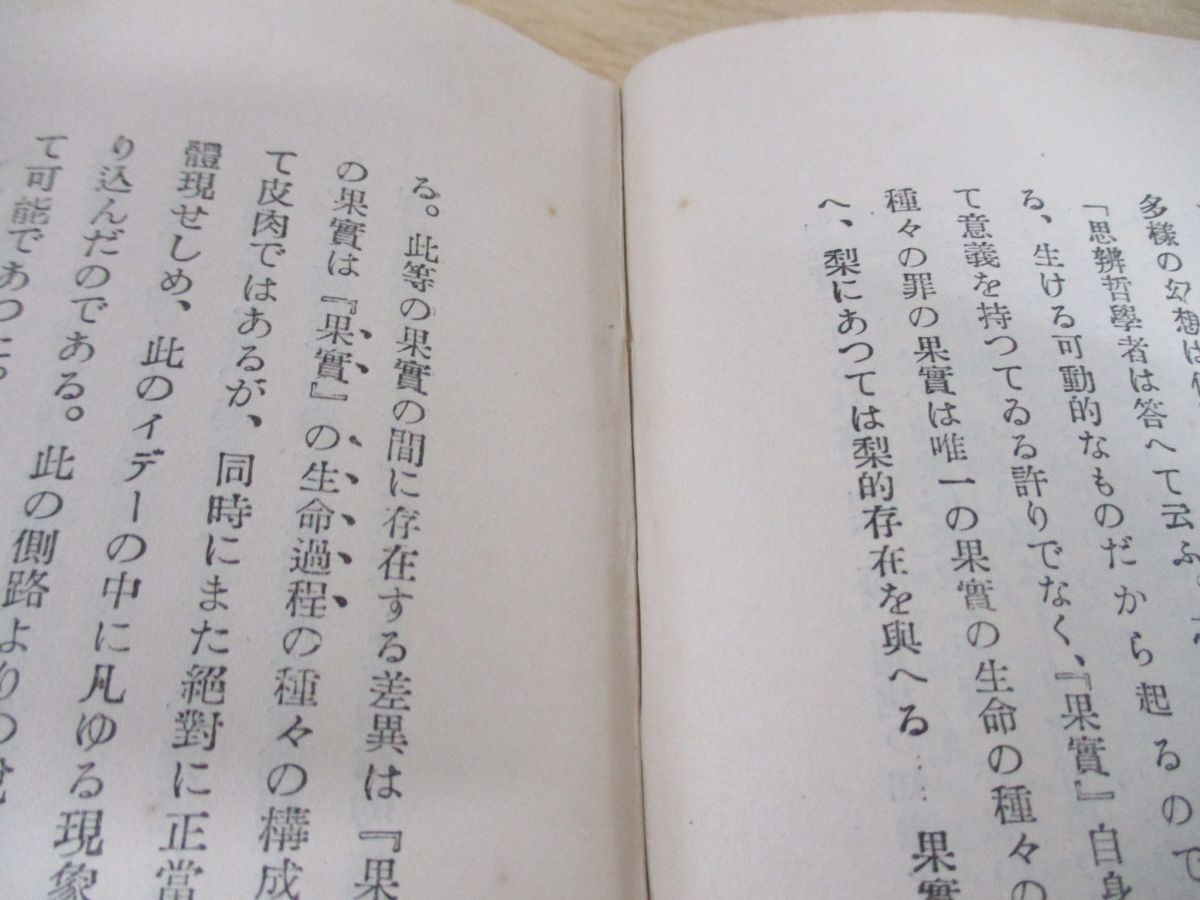 多樣の幻想は
「思辨哲學者は答へて云ふ
る、生ける可動的なものだから起るので
て意義を持つてゐる許りでなく、『果實』自身
種々の罪の果實は唯一の果實の生命の種々の
へ、梨にあつては梨的存在を與へる……果實
る。此等の果實の間に存在する差異は『果
の果實は『果實』の生命過程の種々の構成
て皮肉ではあるが、同時にまた絕對に正當
體現せしめ、此のイデーの中に凡ゆる現象
り込んだのである。此の側路よりの
て可能であつた。